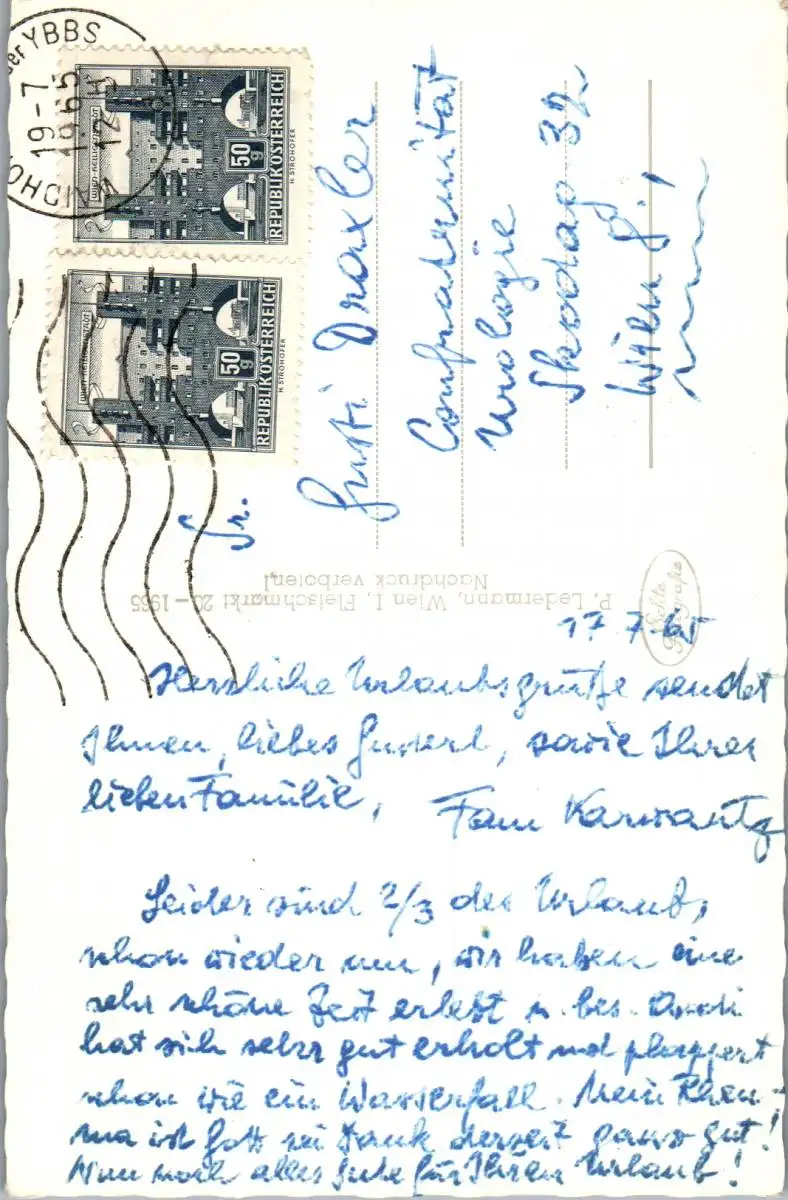 der YBBS
19-7
1965
12
WAIDHO
WIEN-HEILIGENSTADT
50 g
REPUBLIK ÖSTERREICH
H. STROHOFER
WIEN-HEILIGENSTADT
50 g
REPUBLIK ÖSTERREICH
H. STROHOFER
Fr.
Gusti Draxler
Confraternität
Urologie
Skodag 32
Wien 8.,
P. Ledermann, Wien I, Fleischmarkt 20 – 1965
Nachdruck verboten!
Echte
Fotografie
17 7. 65
Herzliche Urlaubsgrüße sendet
Ihnen, liebes Gusterl, sowie Ihrer
lieben Familie, Fam Karwautz
Leider sind 2/3 des Urlaubs,
schon wieder um, wir haben eine
sehr schöne Zeit erlebt u. bes.
hat sich sehr gut erholt und plappert
schon wie ein Wasserfall. Mein Rheu-
ma ist Gott sei Dank derzeit ganz gut!
Nun noch alles Gute für Ihren Urlaub!